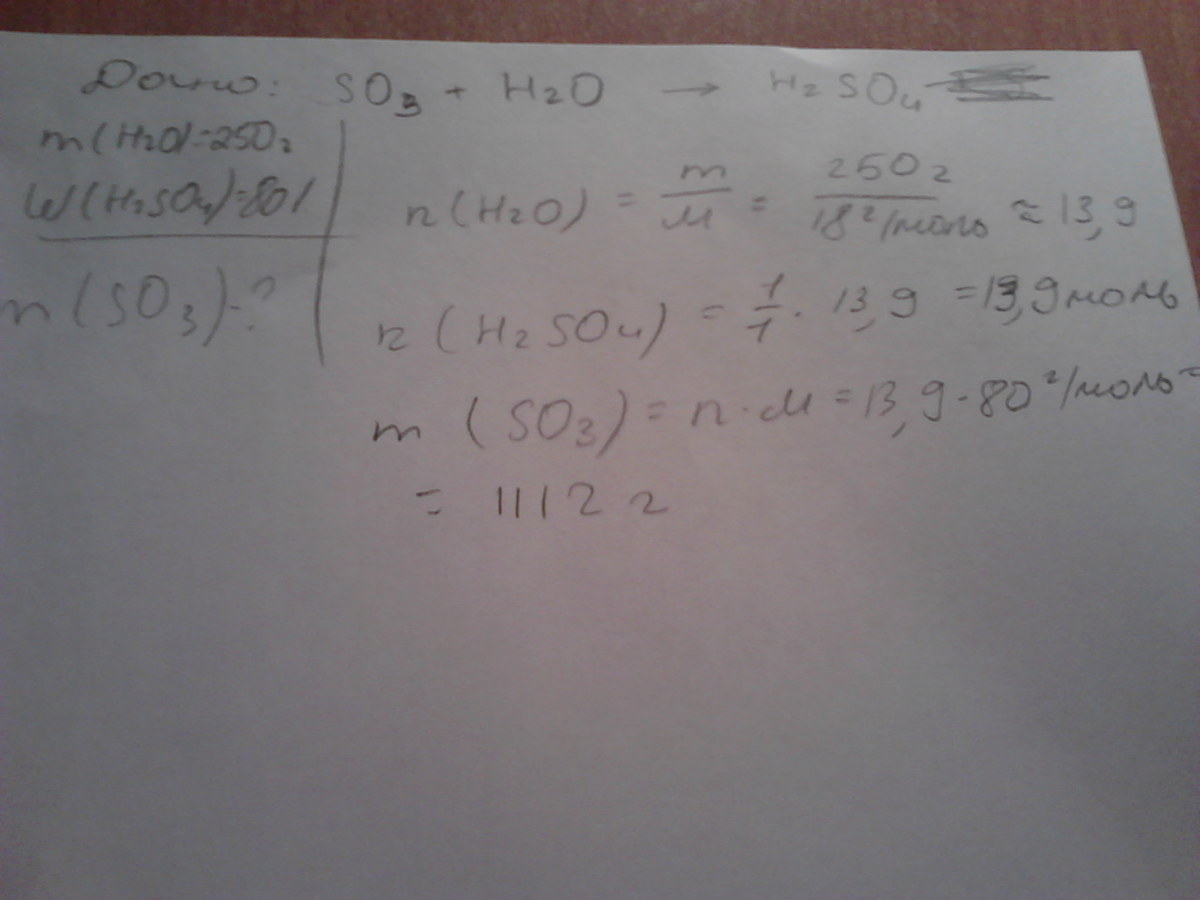 Дано: SO3 + H2O → H2SO4
m(H2O)=250г
W(H2SO4)=80%
m(SO3)-?
n(H2O) = m/M = 250г/18г/моль ≈ 13,9
n(H2SO4) = 1/1 · 13,9 = 13,9моль
m(SO3) = n·M = 13,9·80г/моль=
= 1112 г